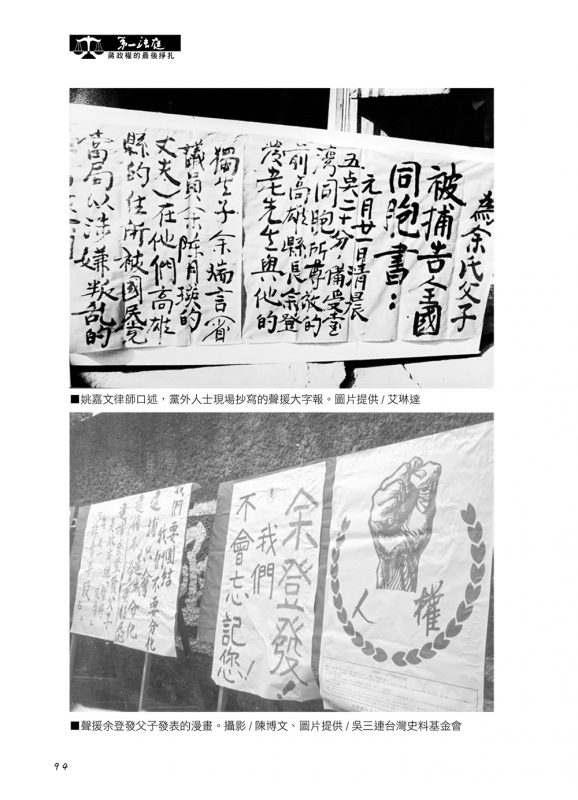 第一法庭
蔣政權的最後掙扎
為余氏父子
被捕告全國
同胞書：
元月廿一日清晨
五點二十分，備受臺
灣同胞所尊敬的
前高雄縣長余登
發老先生與他的
獨生子余瑞言（省
議員余陳月瑛的
丈夫）在他們高雄
縣的住所被國民黨
當局以涉嫌叛乱的
■姚嘉文律師口述，黨外人士現場抄寫的聲援大字報。圖片提供 / 艾琳達
人權
余登發！
我們
不會忘記您！
我們要團結
我們不要分化
■聲援余登發父子發表的漫畫。攝影 / 陳博文、圖片提供 / 吳三連台灣史料基金會
94